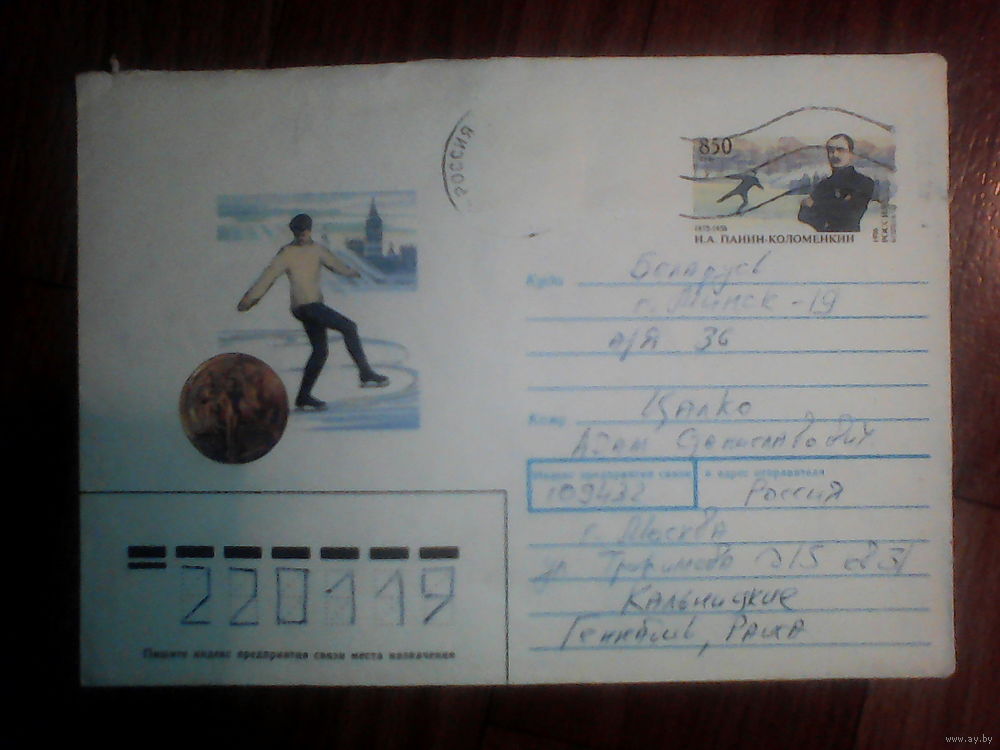 РОССИЯ
850
1872-1956
Н.А. ПАНИН-КОЛОМЕНКИН
Куда Беларусь
г. Минск-19
а/я 36
Кому Цалко
Адам Станиславович
Индекс предприятия связи и адрес отправителя
109432 Россия
г. Москва
ул. Трофимова
Кальницкие
Геннадий, Раиса
220119
Пишите индекс предприятия связи места назначения
www.ay.by